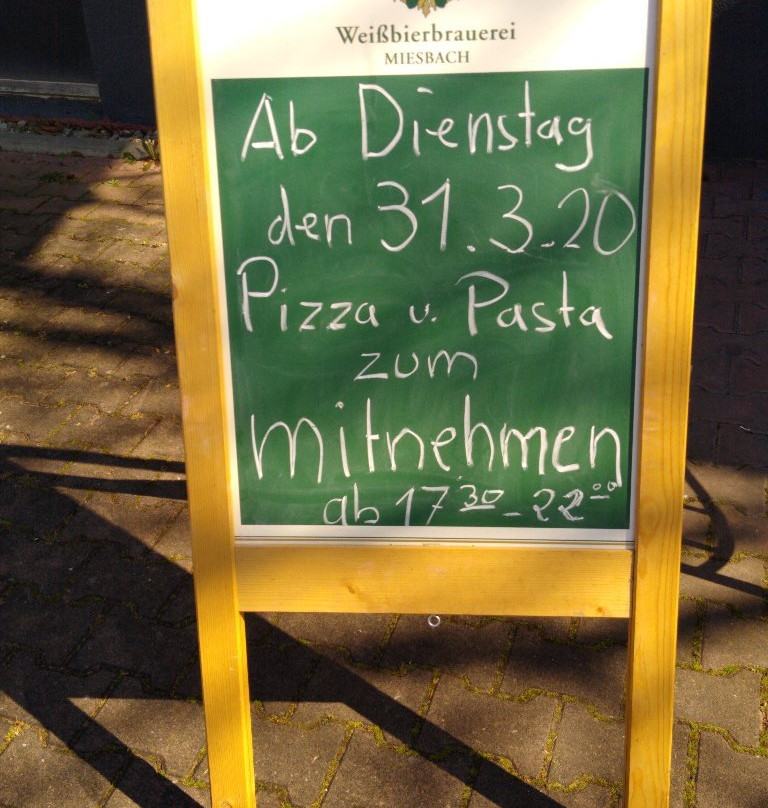 Weißbierbrauerei
MIESBACH
Ab Dienstag
den 31.3.20
Pizza u. Pasta
zum
mitnehmen
ab 17 30 - 22 00